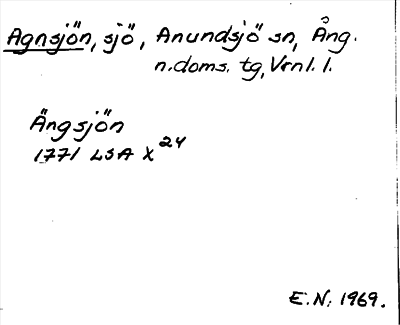 Agnsjön, sjö, Anundsjö sn, Ång.
n. doms. tg, Vrnl. l.
Ängsjön
1771 LSA X 24
E.N. 1969.